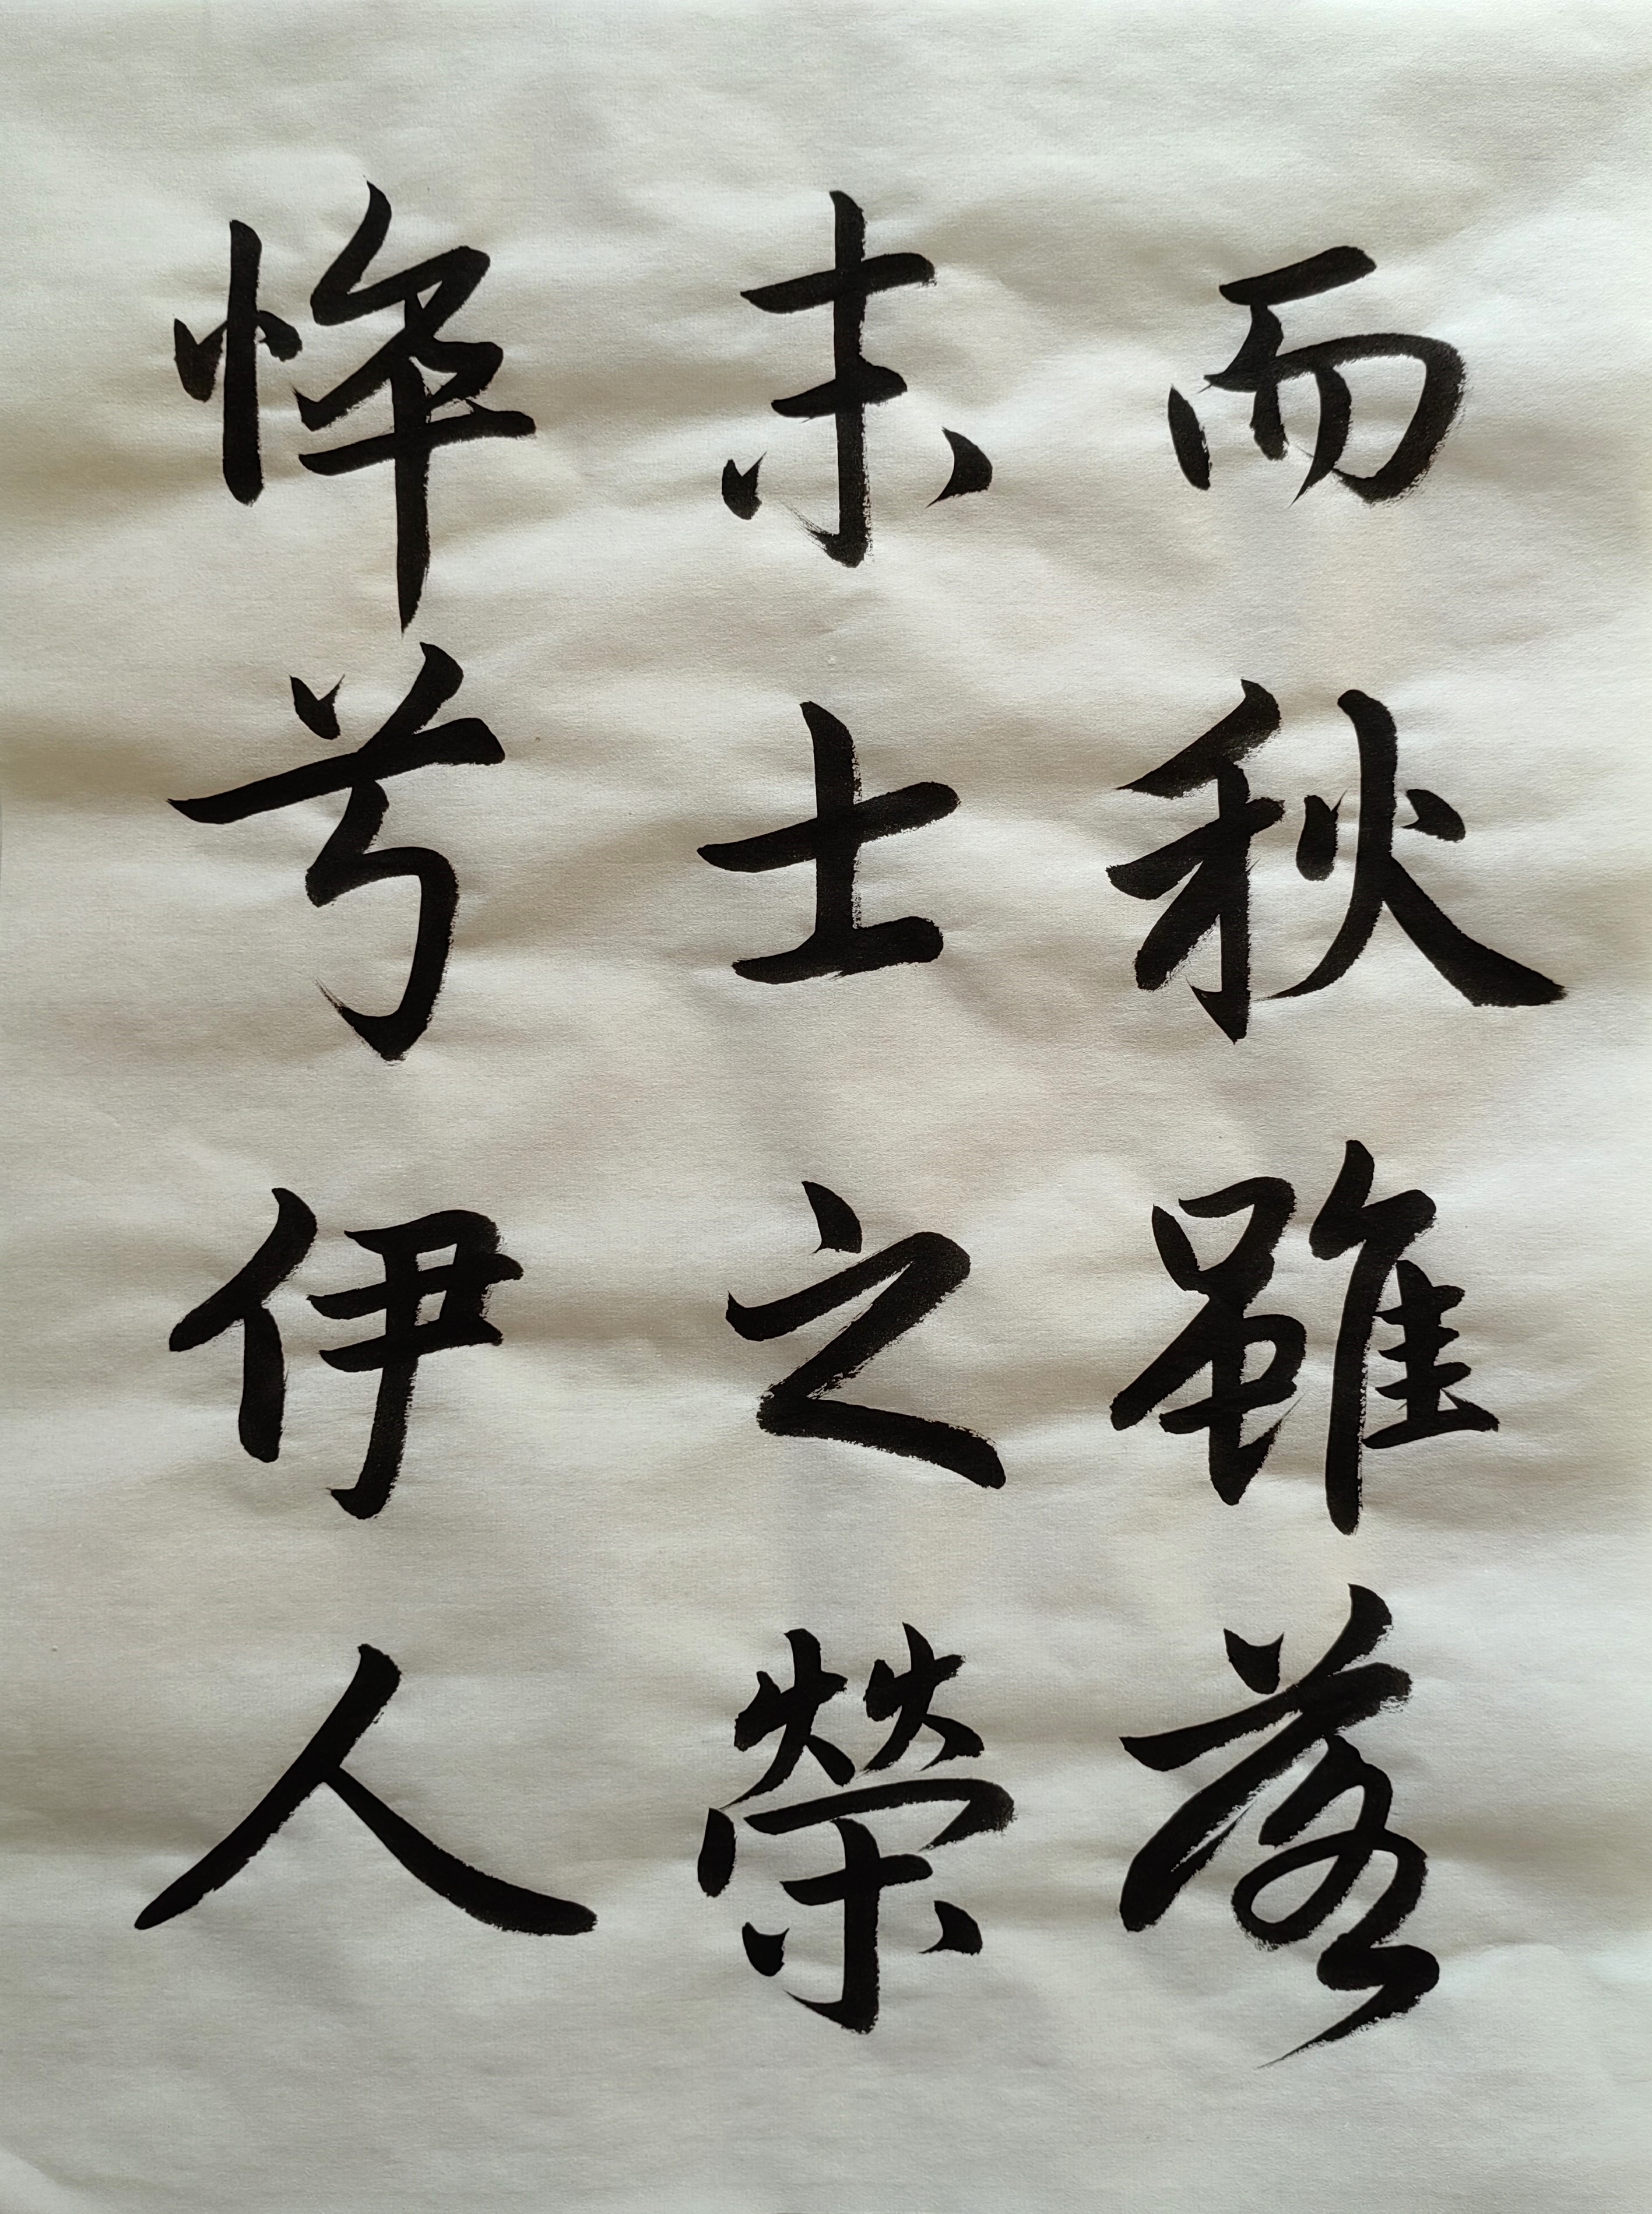 而秋雖落
末士之榮
悴兮伊人